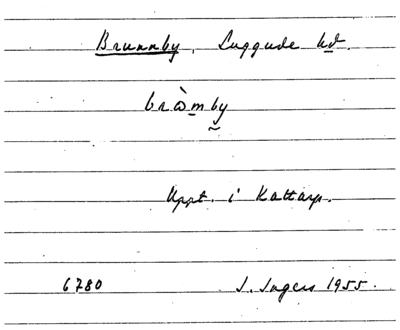 Brunnby, Luggude hd.
bròmby
Uppt. i Kattarp.
6780 J. Ingers 1955.